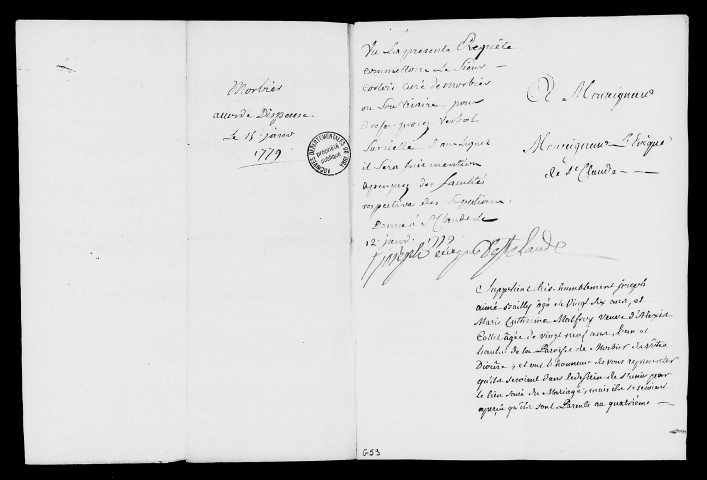 Morbier
accordé Dispense
Le 15 janvr
1779
ARCHIVES DEPARTEMENTALES DU JURA
propriété
publique
Vu La presente Requête
commettons Le Sieur
curé de morbier
ou Son vicaire pour
Dresser procez verbal
Sur icelle Dans Lequel
il Sera fait mention
des facultés
respectives des Supplians
Donné à St Claude Le
12 janv. 1779
+ joseph évêque De St Claude
A Monseigneur
Monseigneur L'Evêque
de St Claude
Supplient très humblement joseph
aimé Bailly âgé de vingt six ans, et
Marie Catherine Malfroy veuve d'Alexis
Collet âgée de vingt neuf ans, L'un et
L'autre de la Paroisse de Morbier de votre
Diocèse, et ont L'honneur de vous representer
qu'ils seroient dans le dessein de s'unir par
le lien sacré du Mariage, mais ils se seroient
aperçu qu'ils sont Parents au quatrième
G53